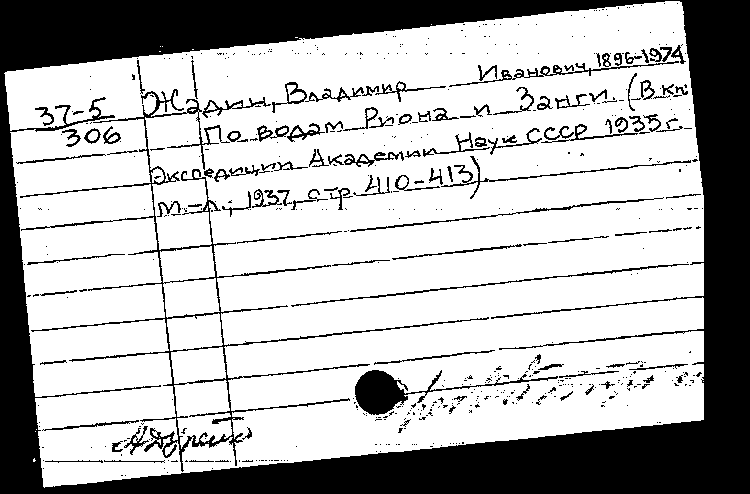 37-5
306
Жадин, Владимир Иванович, 1896-1974
По водам Риона и Занги. (В кн:
Экспедиции Академии Наук СССР 1935 г.
М.-Л., 1937, стр. 410-413).